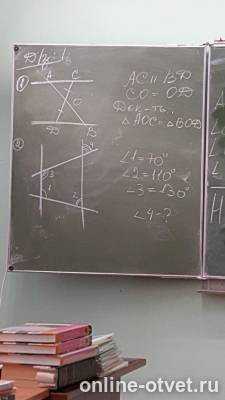 Д/з:
① A C
O
D B
AC ∥ BD
CO = OD
Док-ть:
△AOC = △BOD
②
4
3
1 2
∠1=70°
∠2=110°
∠3=130°
∠4-?
online-otvet.ru